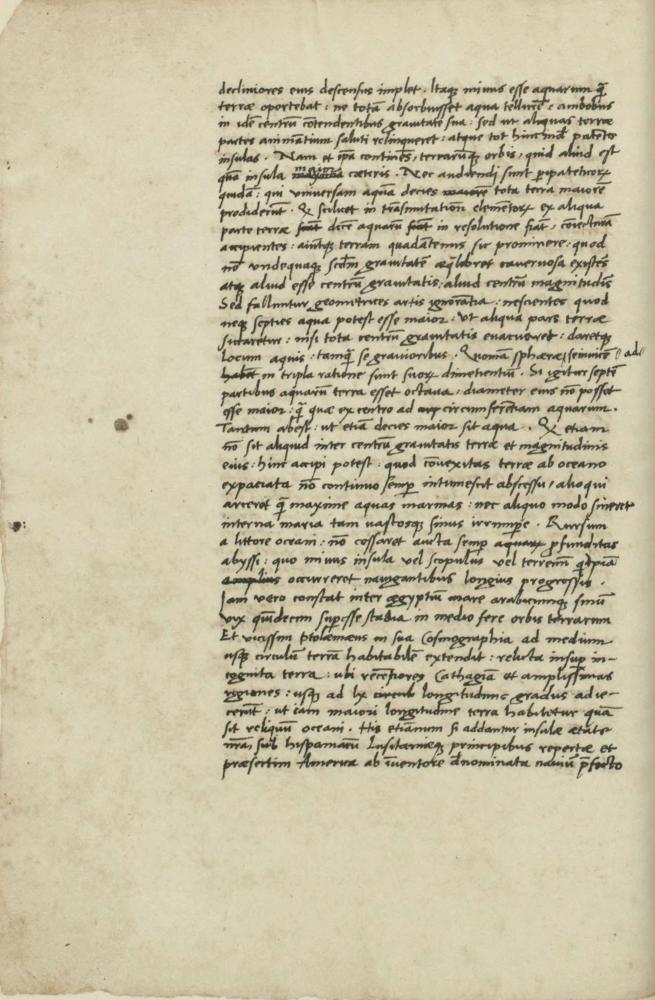 decliviores eius descensus implet. Itaq; minus esse aquarum q̃
terræ oportebat: ne totã absorbuisset aqua tellurẽ: ambobus
in idẽ centrũ cõtendentibus gravitate sua: sed ut aliquas terræ
partes animãtium saluti relinqueret: atque tot hinc indẽ patẽtes
insulas. Nam et ipã continẽs, terrarũq; orbis, quid aliud est
quã insula maior cæteris. Nec audiendi sunt peripateticorꝝ
quidã: qui universam aquã decies tota terra maiorẽ
prodiderũt. Q scilicet in trãsmutatiõe elemẽtorꝝ ex aliqua
parte terræ decẽ aquarũ in resolutione fiãt, coniecturã
accipientes: aiũtq; terram quadãtenus sic prominere: quod
nõ undequaq; scdm̃ gravitatẽ æq̃libret cavernosa existẽs
atq; aliud esse centrũ gravitatis, aliud centrũ magnitudĩs
Sed falluntur geometrices artis ignorãtia: nescientes quod
neq; septies aqua potest esse maior: ut aliqua pars terræ
siccaretur: nisi tota centrũ gravitatis evacuaret: daretq;
locum aquis: tamq̃ se gravioribus. Quoniã sphæræ, seinvicẽ ad
in tripla ratione sunt suorꝝ dimetientiũ. Si igitur septẽ
partibus aquarũ terra esset octava, diameter eius nõ posset
esse maior: q̃ quæ ex centro ad circumferẽtiam aquarum.
Tantum abest: ut etiã decies maior sit aqua. Q etiam
nõ sit aliquid inter centrũ gravitatis terræ et magnitudinis
eius: hinc accipi potest: quod cõvexitas terræ ab oceano
expaciata nõ continuo semp̃ intumescit abscessu, alioqui
arceret q̃ maxime aquas marinas: nec aliquo modo sineret
interna maria tam vastosq; sinus irrumpe. Rursum
a littore oceani: nõ cessaret aucta semp̃ aquarꝝ p̃funditas
abyssi: quo minus insula vel scopulus vel terrenũ q̃dpiã
occurreret navigantibus longius progressis.
Jam vero constat inter ægyptiũ mare arabicumq; sinũ
vix quĩdecim sup̃esse stadia in medio fere orbis terrarum
Et vicissim Ptolemæus in sua Cosmographia ad medium
usq; circulũ terrã habitabilẽ extendit: relicta insup̃ in-
cognita terra: ubi recẽtiores Cathagiã et amplissimas
regiones: usq; ad lx longitudinis gradus adie-
cerũt: ut iam maiori longitudine terra habitetur quã
sit reliquũ oceani. His etiãnum si addantur insulæ ætate
nr̃a, sub hispaniarũ Lusitaniæq; principibus repertæ et
præsertim America ab ĩventore dñominata naviũ p̃fecto